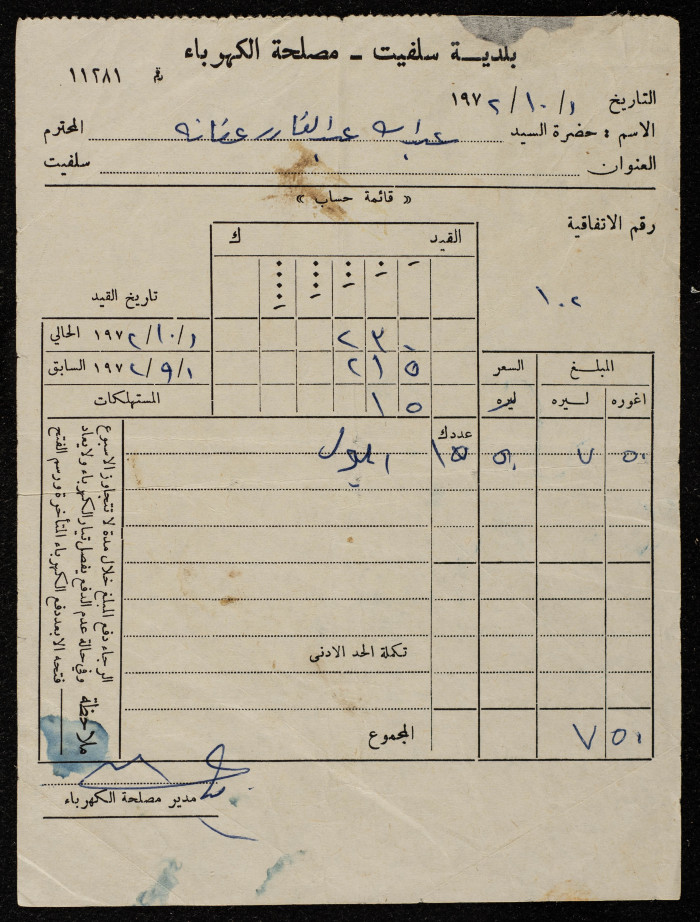 بلديــة سلفيت ـ مصلحة الكهرباء
رقم ١١٢٨١
التاريخ ١/١٠/١٩٧٢
الاسم : حضرة السيد عبدالله عبد القادر عفانه المحترم
العنوان سلفيت
« قائمة حساب »
رقم الاتفاقية
١٠٢
القيد ك
١ ١٠ ١٠٠ ١٠٠٠ ١٠٠٠٠
تاريخ القيد
٢٣٠ ١/١٠/١٩٧٢ الحالي
٢١٥ ١/٩/١٩٧٢ السابق
١٥ المستهلكات
المبلغ السعر
اغوره ليره ليره
عدد ك
٥٠ ٧ ٥٠ ١٥ ايلول
تكملة الحد الادنى
المجموع
٥٠ ٧
ملاحظة
الرجاء دفع المبلغ خلال مدة لا تتجاوز الاسبوع
وفي حالة عدم الدفع يفصل تيار الكهرباء ولا يعاد
فتحه الا بعد دفع الكهرباء المتأخرة ورسم الفتح
مدير مصلحة الكهرباء